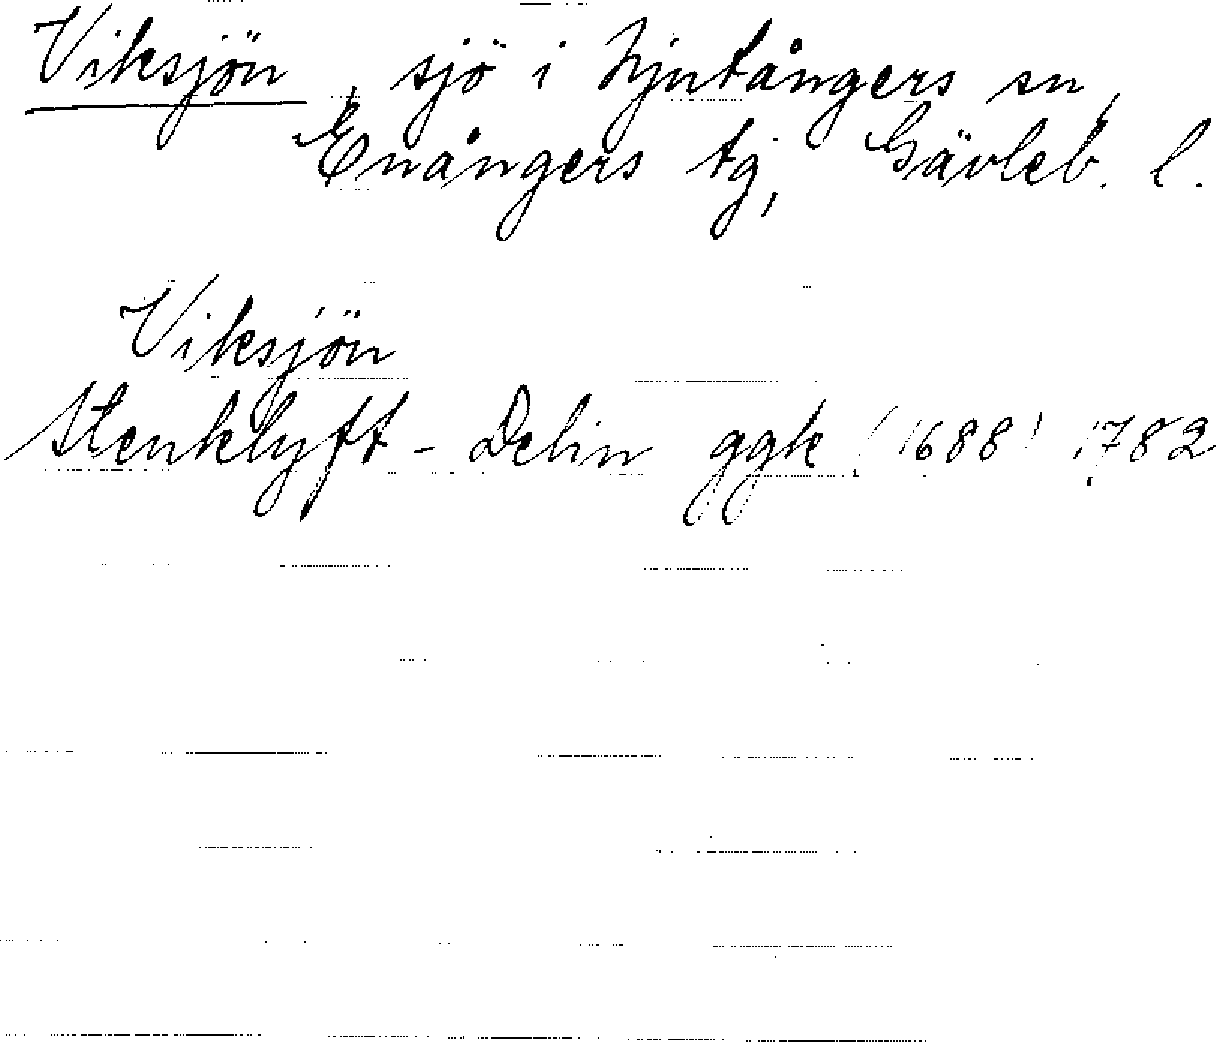 Viksjön, sjö i Njutångers sn,
Enångers tg, Gävleb. l.
Viksjön
Stenklyft - Delin ggk (1688) 1782